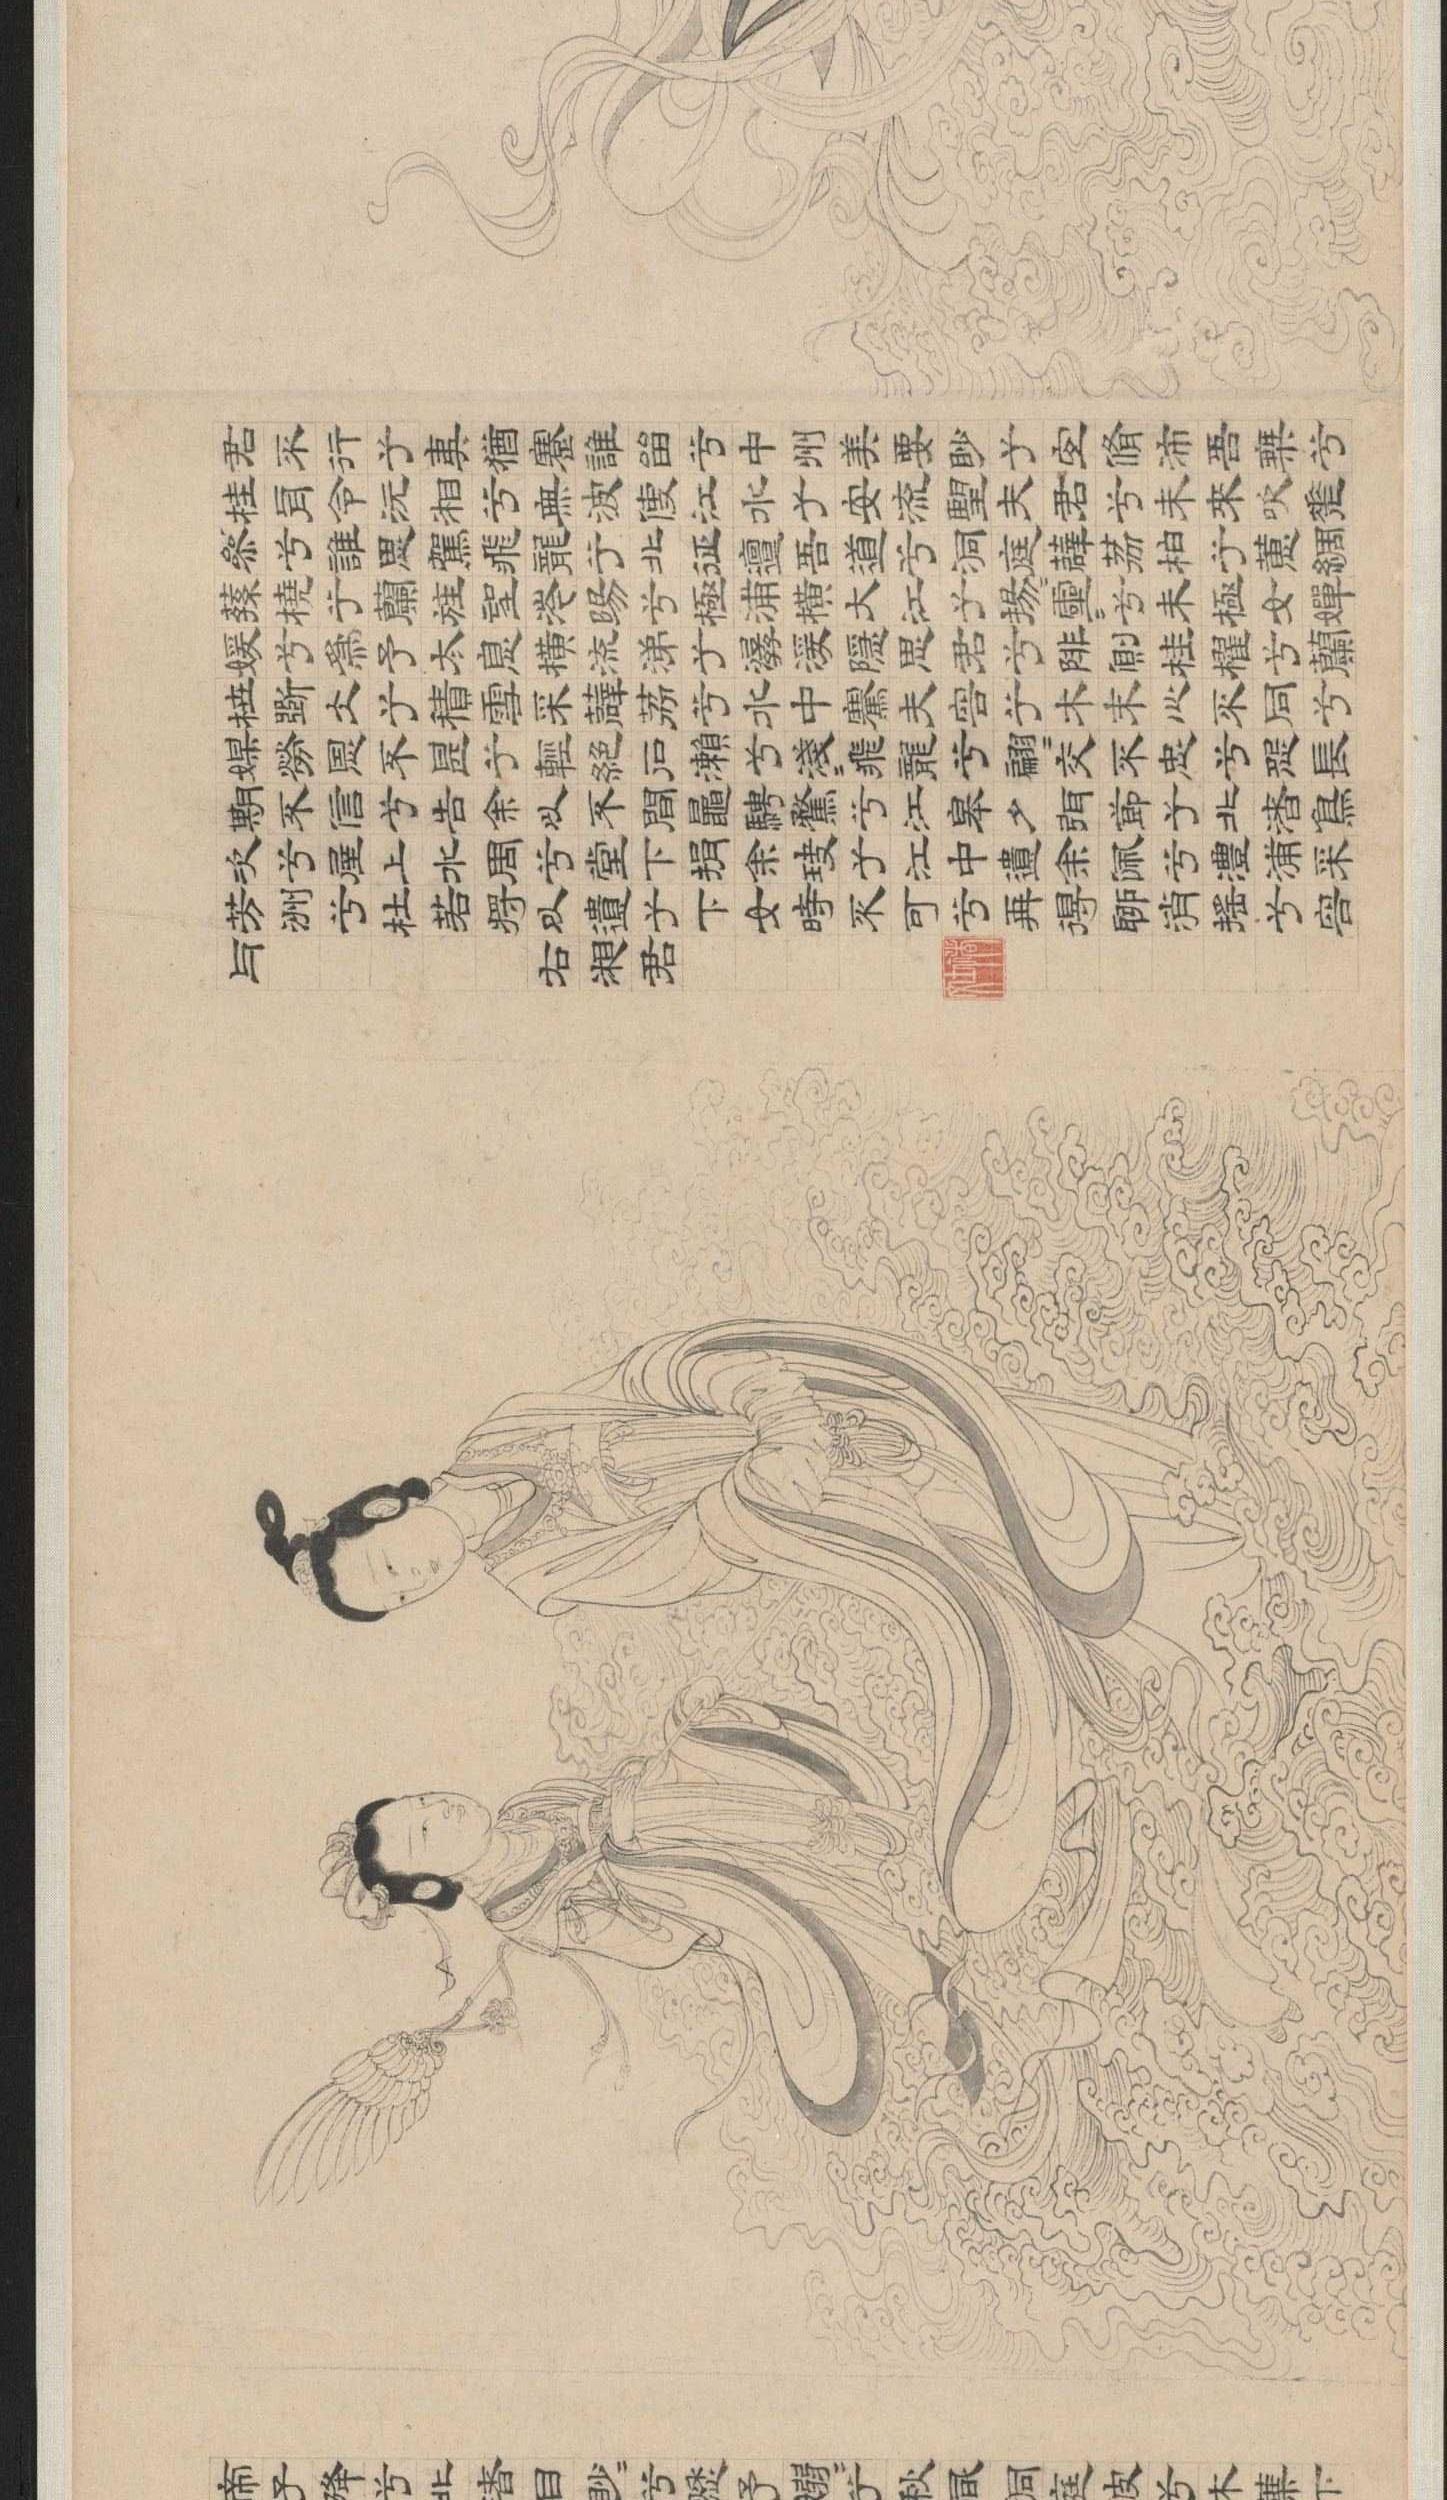 君不行兮夷猶蹇誰留兮中州美要眇兮宜脩沛吾椉兮
桂舟令沅湘兮無波使江水兮安流望夫君兮未來吹參
差兮誰思駕飛龍兮北征邅吾道兮洞庭薜荔柏兮蕙綢
蓀橈兮蘭旌望涔陽兮極浦橫大江兮揚〻靈〻兮未極女嬋
媛兮為余太息橫流涕兮潺湲隱思君兮陫側桂櫂兮蘭
枻斲冰兮積雪采薜荔兮水中搴夫容兮木末心不同兮
媒勞恩不甚兮輕絕石瀨兮淺〻飛龍兮翩〻交不忠兮怨長
期不信兮告余以不間鼂騁騖兮江皋夕弭節兮北渚鳥
次兮屋上水周兮堂下捐余玦兮江中遺余佩兮澧浦采
芳洲兮杜若將以遺兮下女時不可兮再得聊消搖兮容
与
右湘君
帝子降兮北渚目眇〻兮愁予嫋〻兮秋風洞庭波兮木葉下